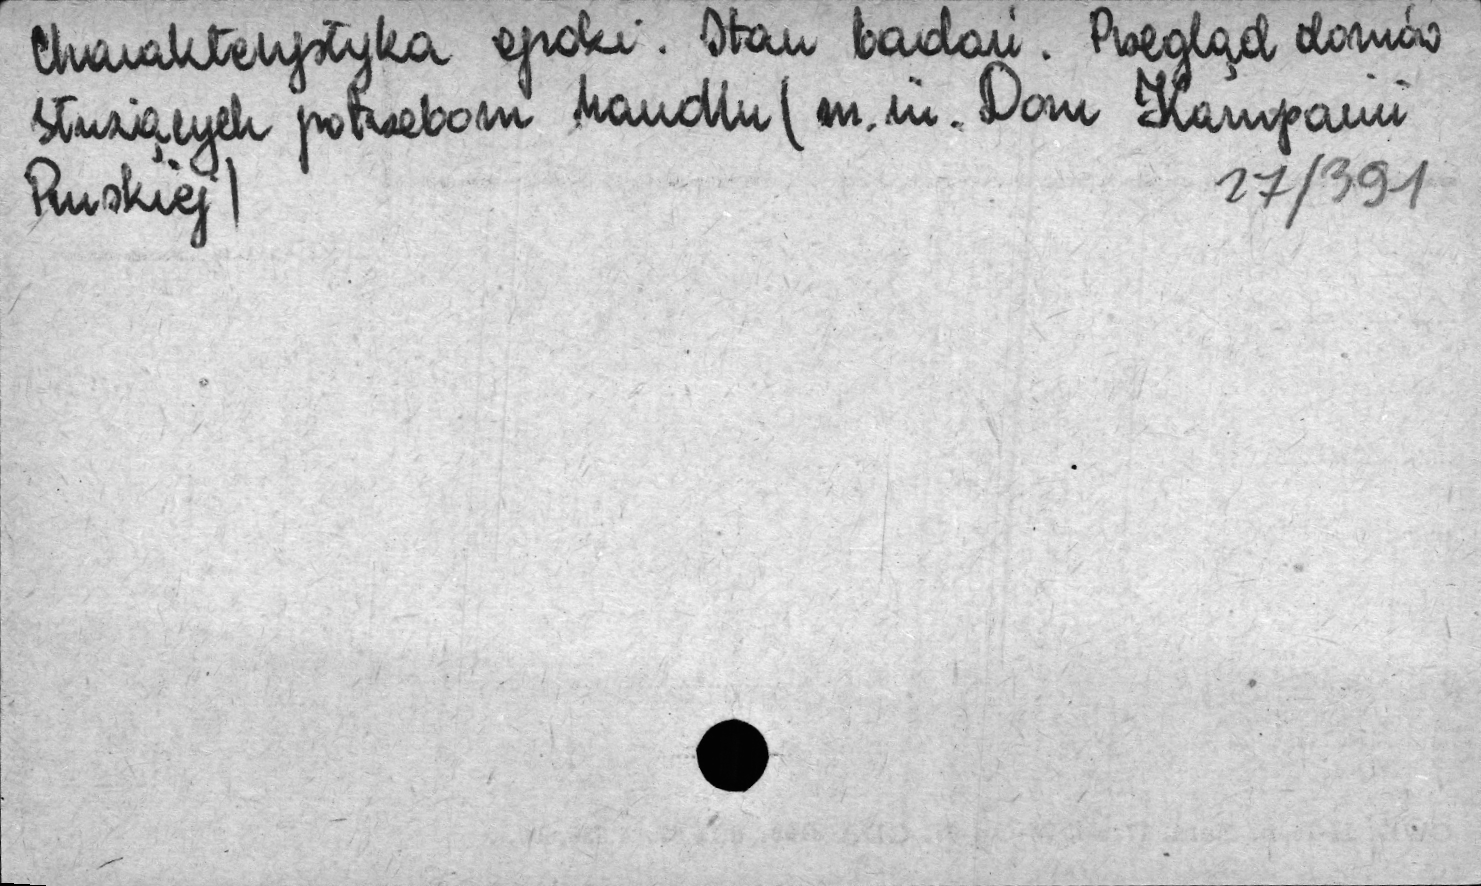 Charakterystyka epoki. Stan badań. Przegląd domów
służących potrzebom handlu (m. in. Dom Kampanii
Pruskiej)
27/391